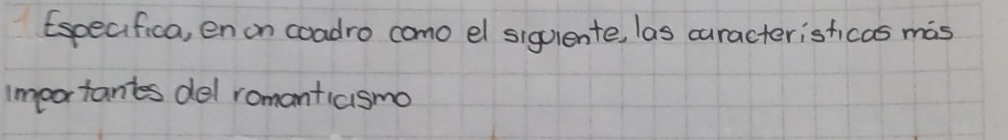 1 Especifica, en un cuadro como el siguiente, las características más
importantes del romanticismo